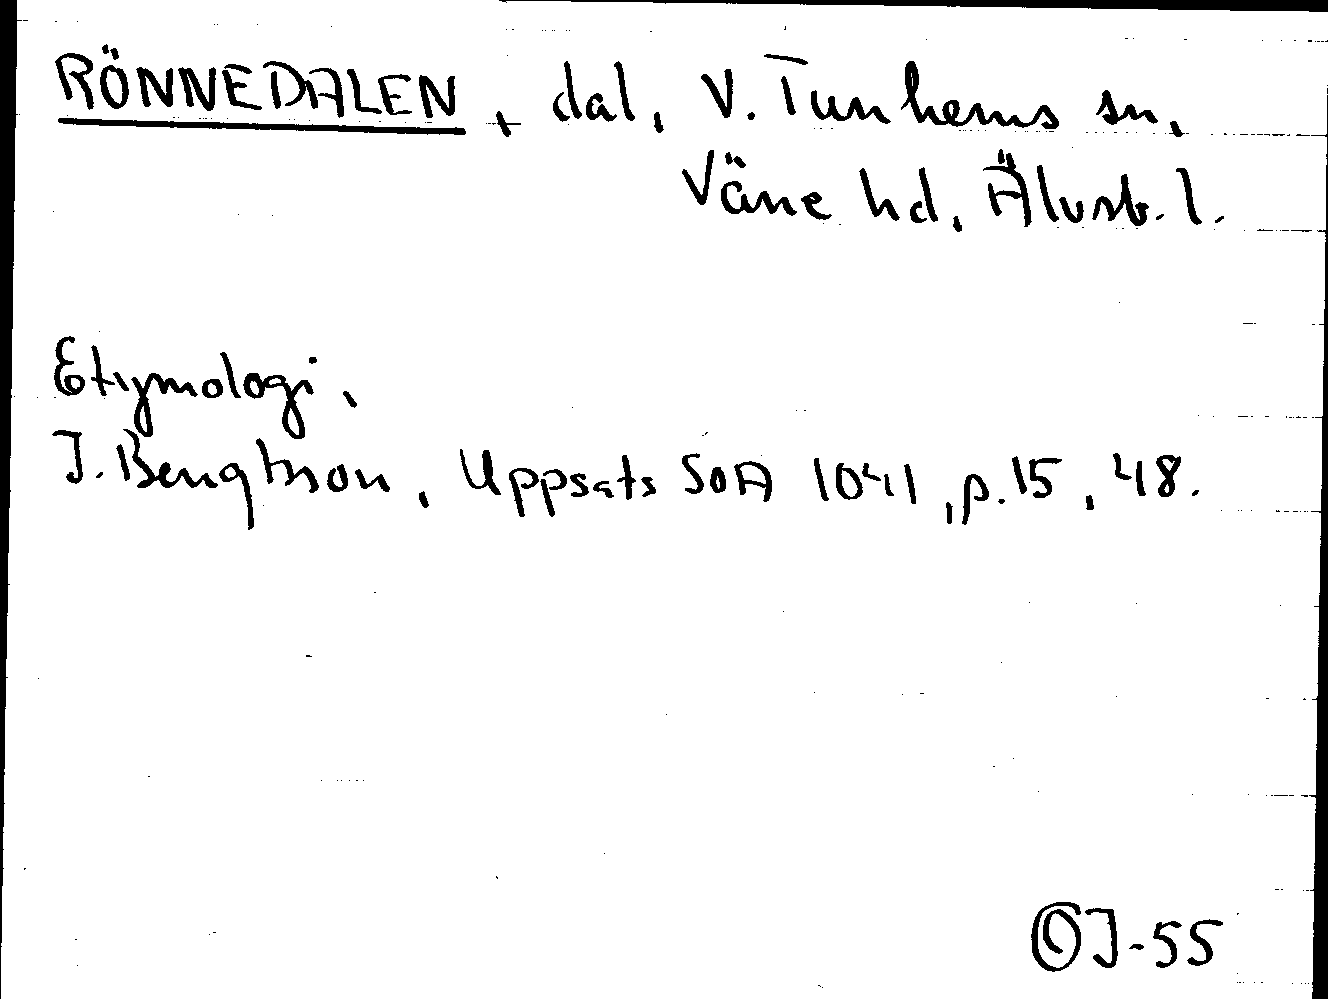 RÖNNEDALEN, dal, V. Tunhems sn,
Väne hd, Älvsb. l.
Etymologi,
J. Bengtson, Uppsats SOA 1041, p. 15, 48.
OJ-55